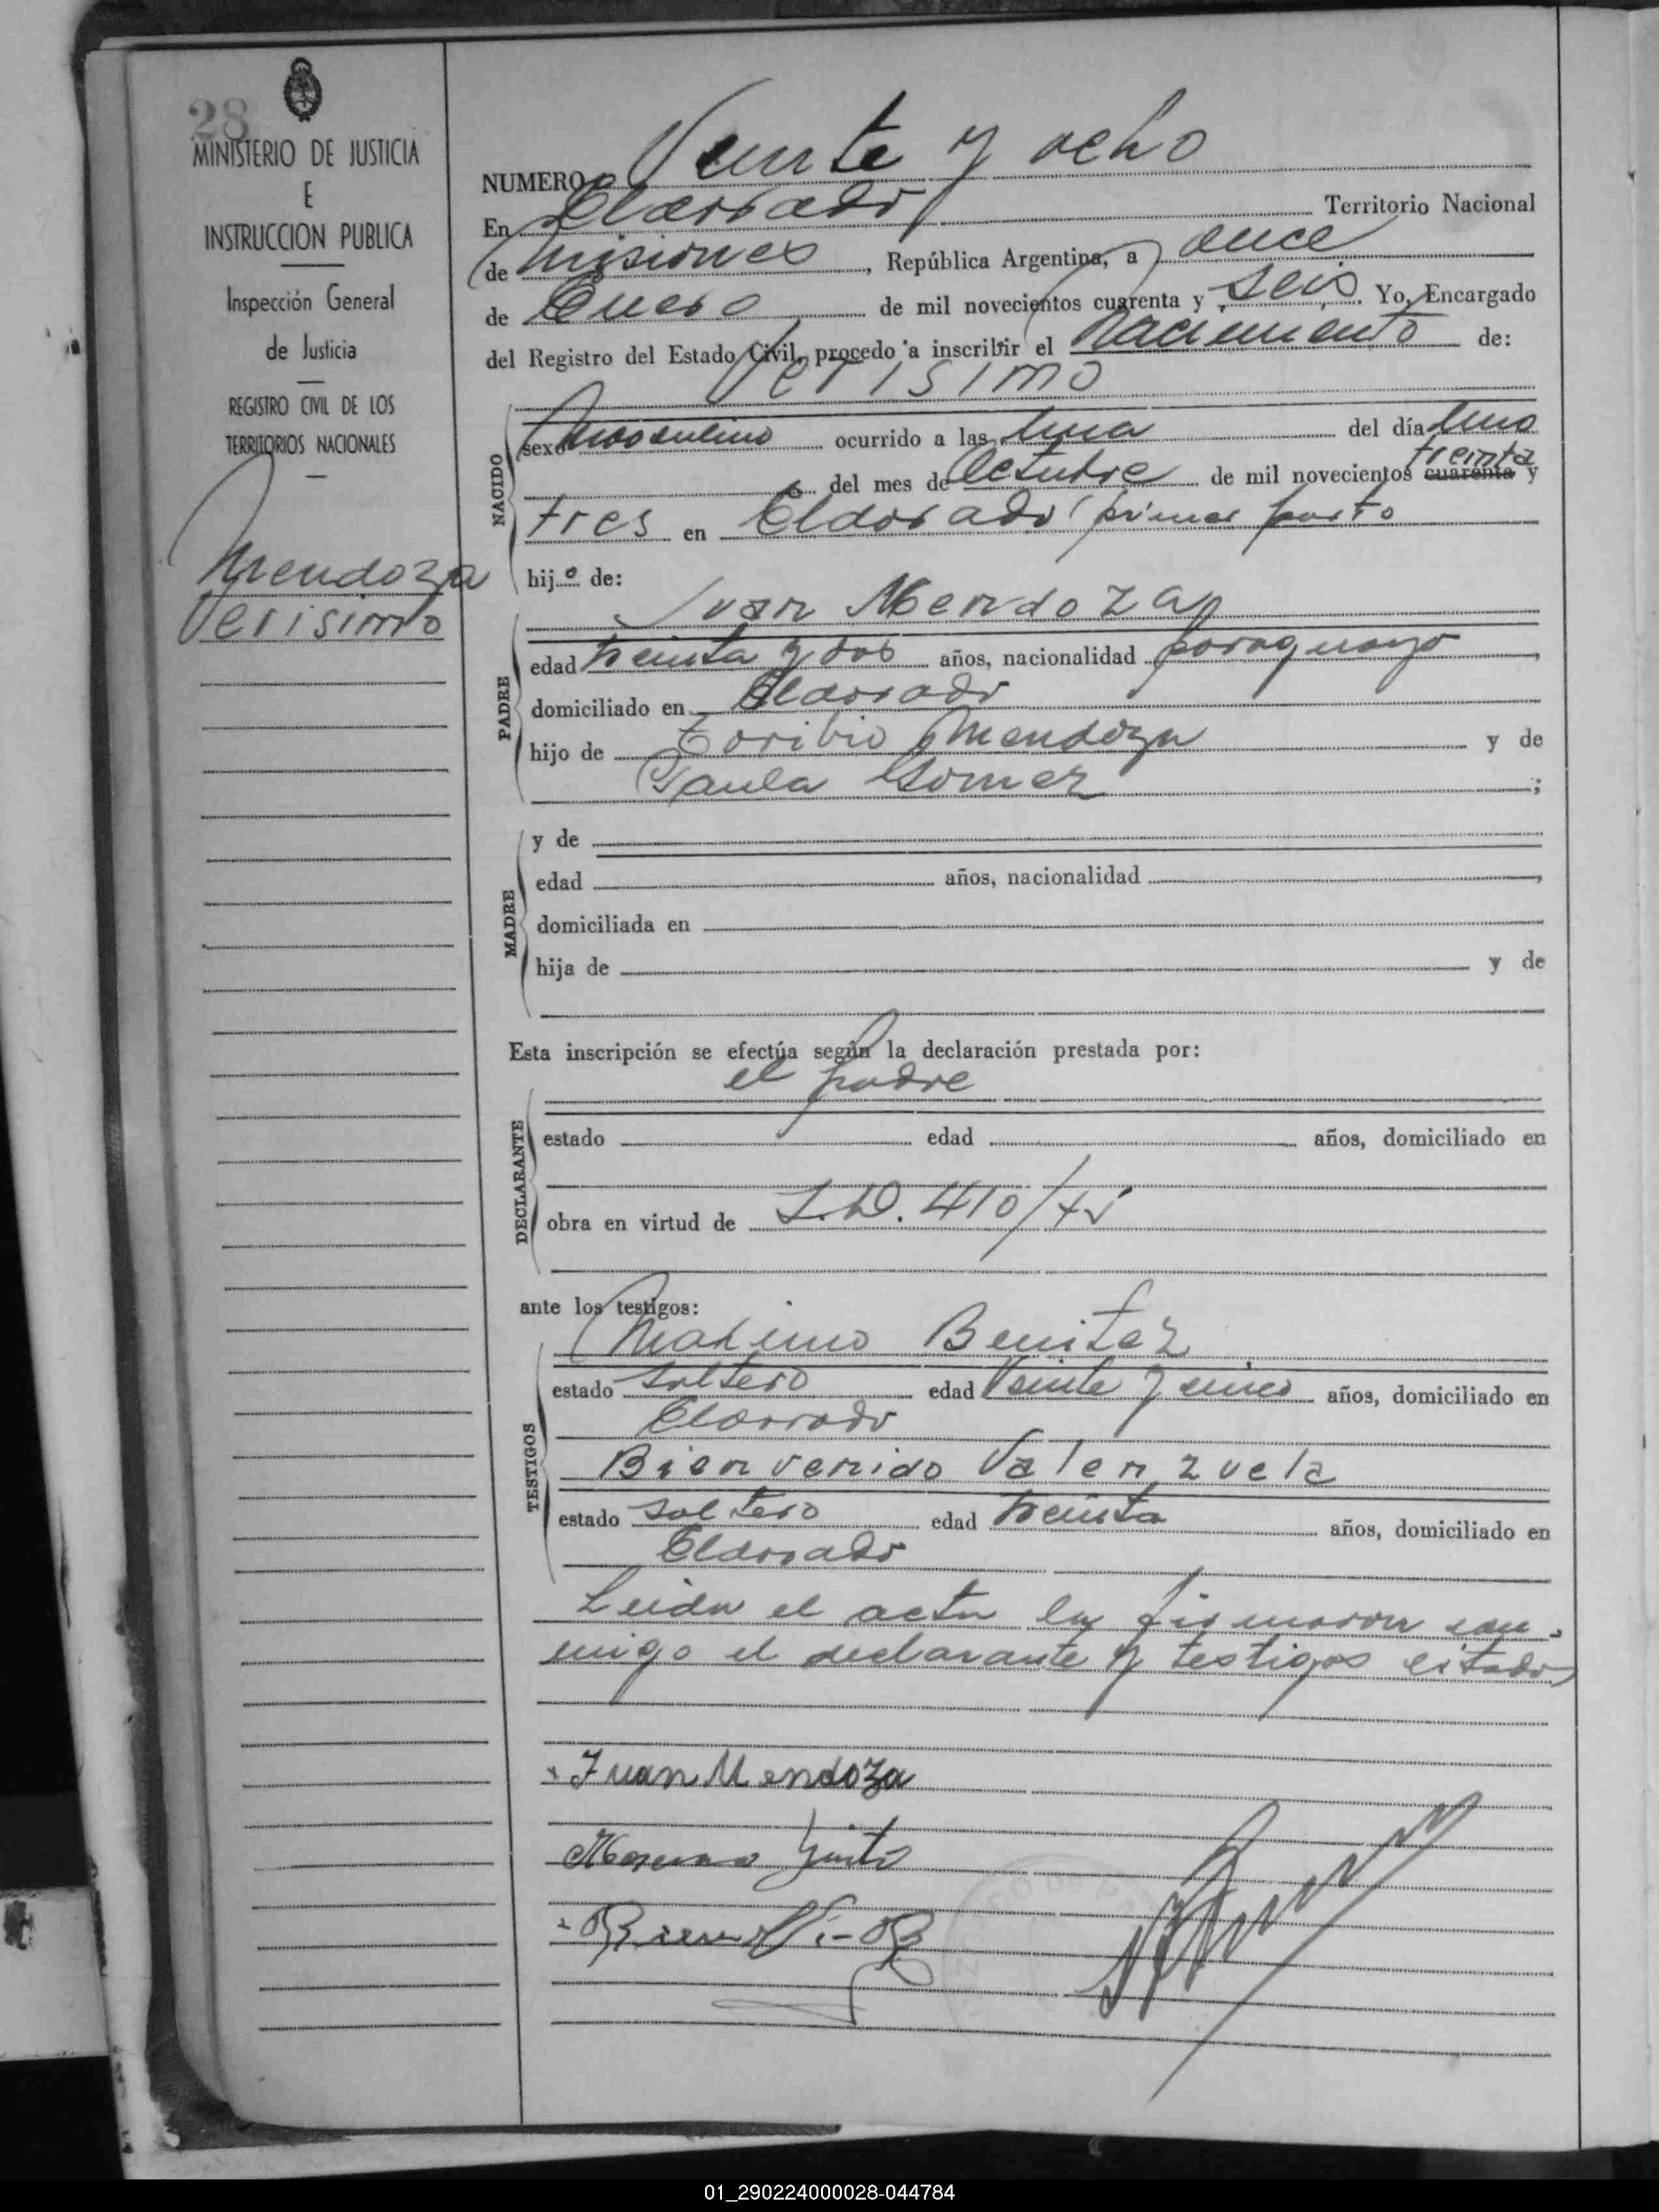 28
MINISTERIO DE JUSTICIA
E
INSTRUCCION PUBLICA
Inspección General
de Justicia
REGISTRO CIVIL DE LOS
TERRITORIOS NACIONALES
Mendoza
Verisimo
NUMERO Veinte y ocho
En Eldorado Territorio Nacional
de Misiones, República Argentina, a once
de Enero de mil novecientos cuarenta y seis. Yo, Encargado
del Registro del Estado Civil, procedo a inscribir el Nacimiento de:
Verisimo
NACIDO
sexo Masculino ocurrido a las una del día uno
treinta
del mes de Octubre de mil novecientos cuarenta y
tres en Eldorado primer puerto
hijo de:
Juan Mendoza
PADRE
edad treinta y dos años, nacionalidad paraguayo,
domiciliado en Eldorado
hijo de Toribio Mendoza y de
Paula Gomez;
MADRE
y de
edad años, nacionalidad,
domiciliada en
hija de y de
Esta inscripción se efectúa según la declaración prestada por:
el padre
DECLARANTE
estado edad años, domiciliado en
obra en virtud de 410/45
ante los testigos:
Maximo Benitez
TESTIGOS
estado soltero edad Veinte y cinco años, domiciliado en
Eldorado
Bienvenido Valenzuela
estado soltero edad treinta años, domiciliado en
Eldorado
Leida el acta la firmaron con-
migo el declarante y testigos citados
Juan Mendoza
01_290224000028-044784